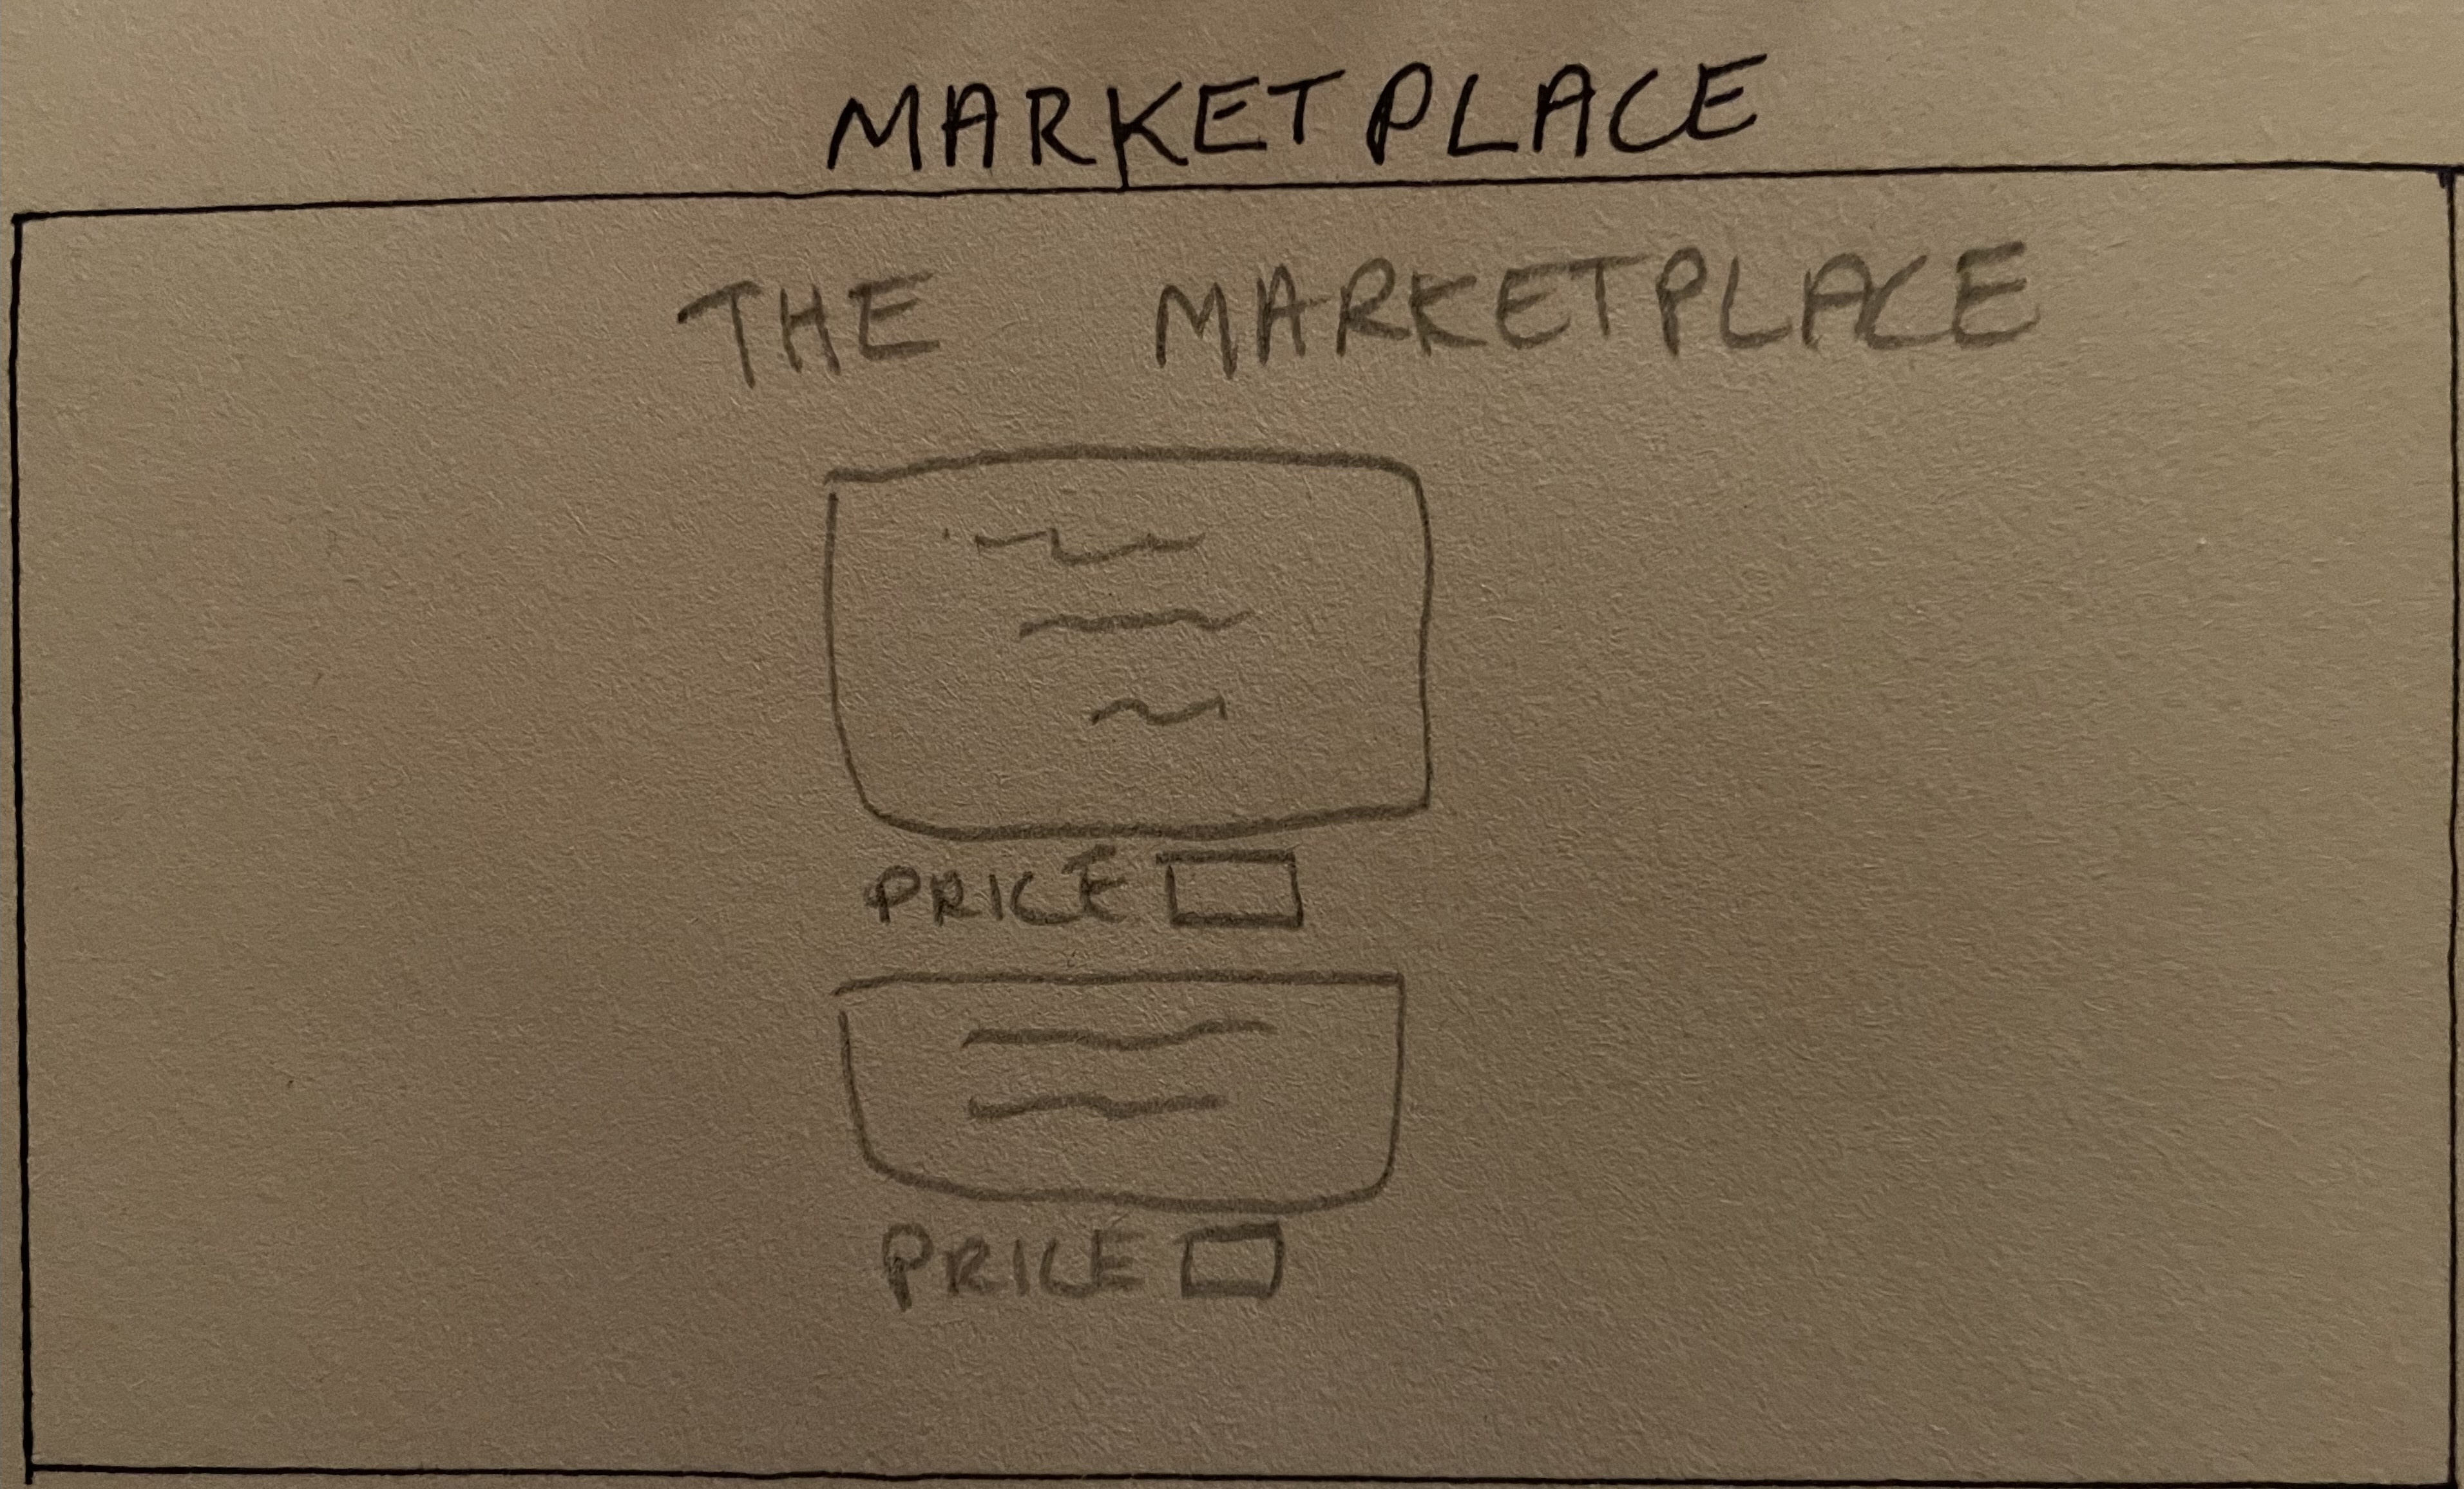 MARKETPLACE
THE MARKETPLACE
PRICE
PRICE